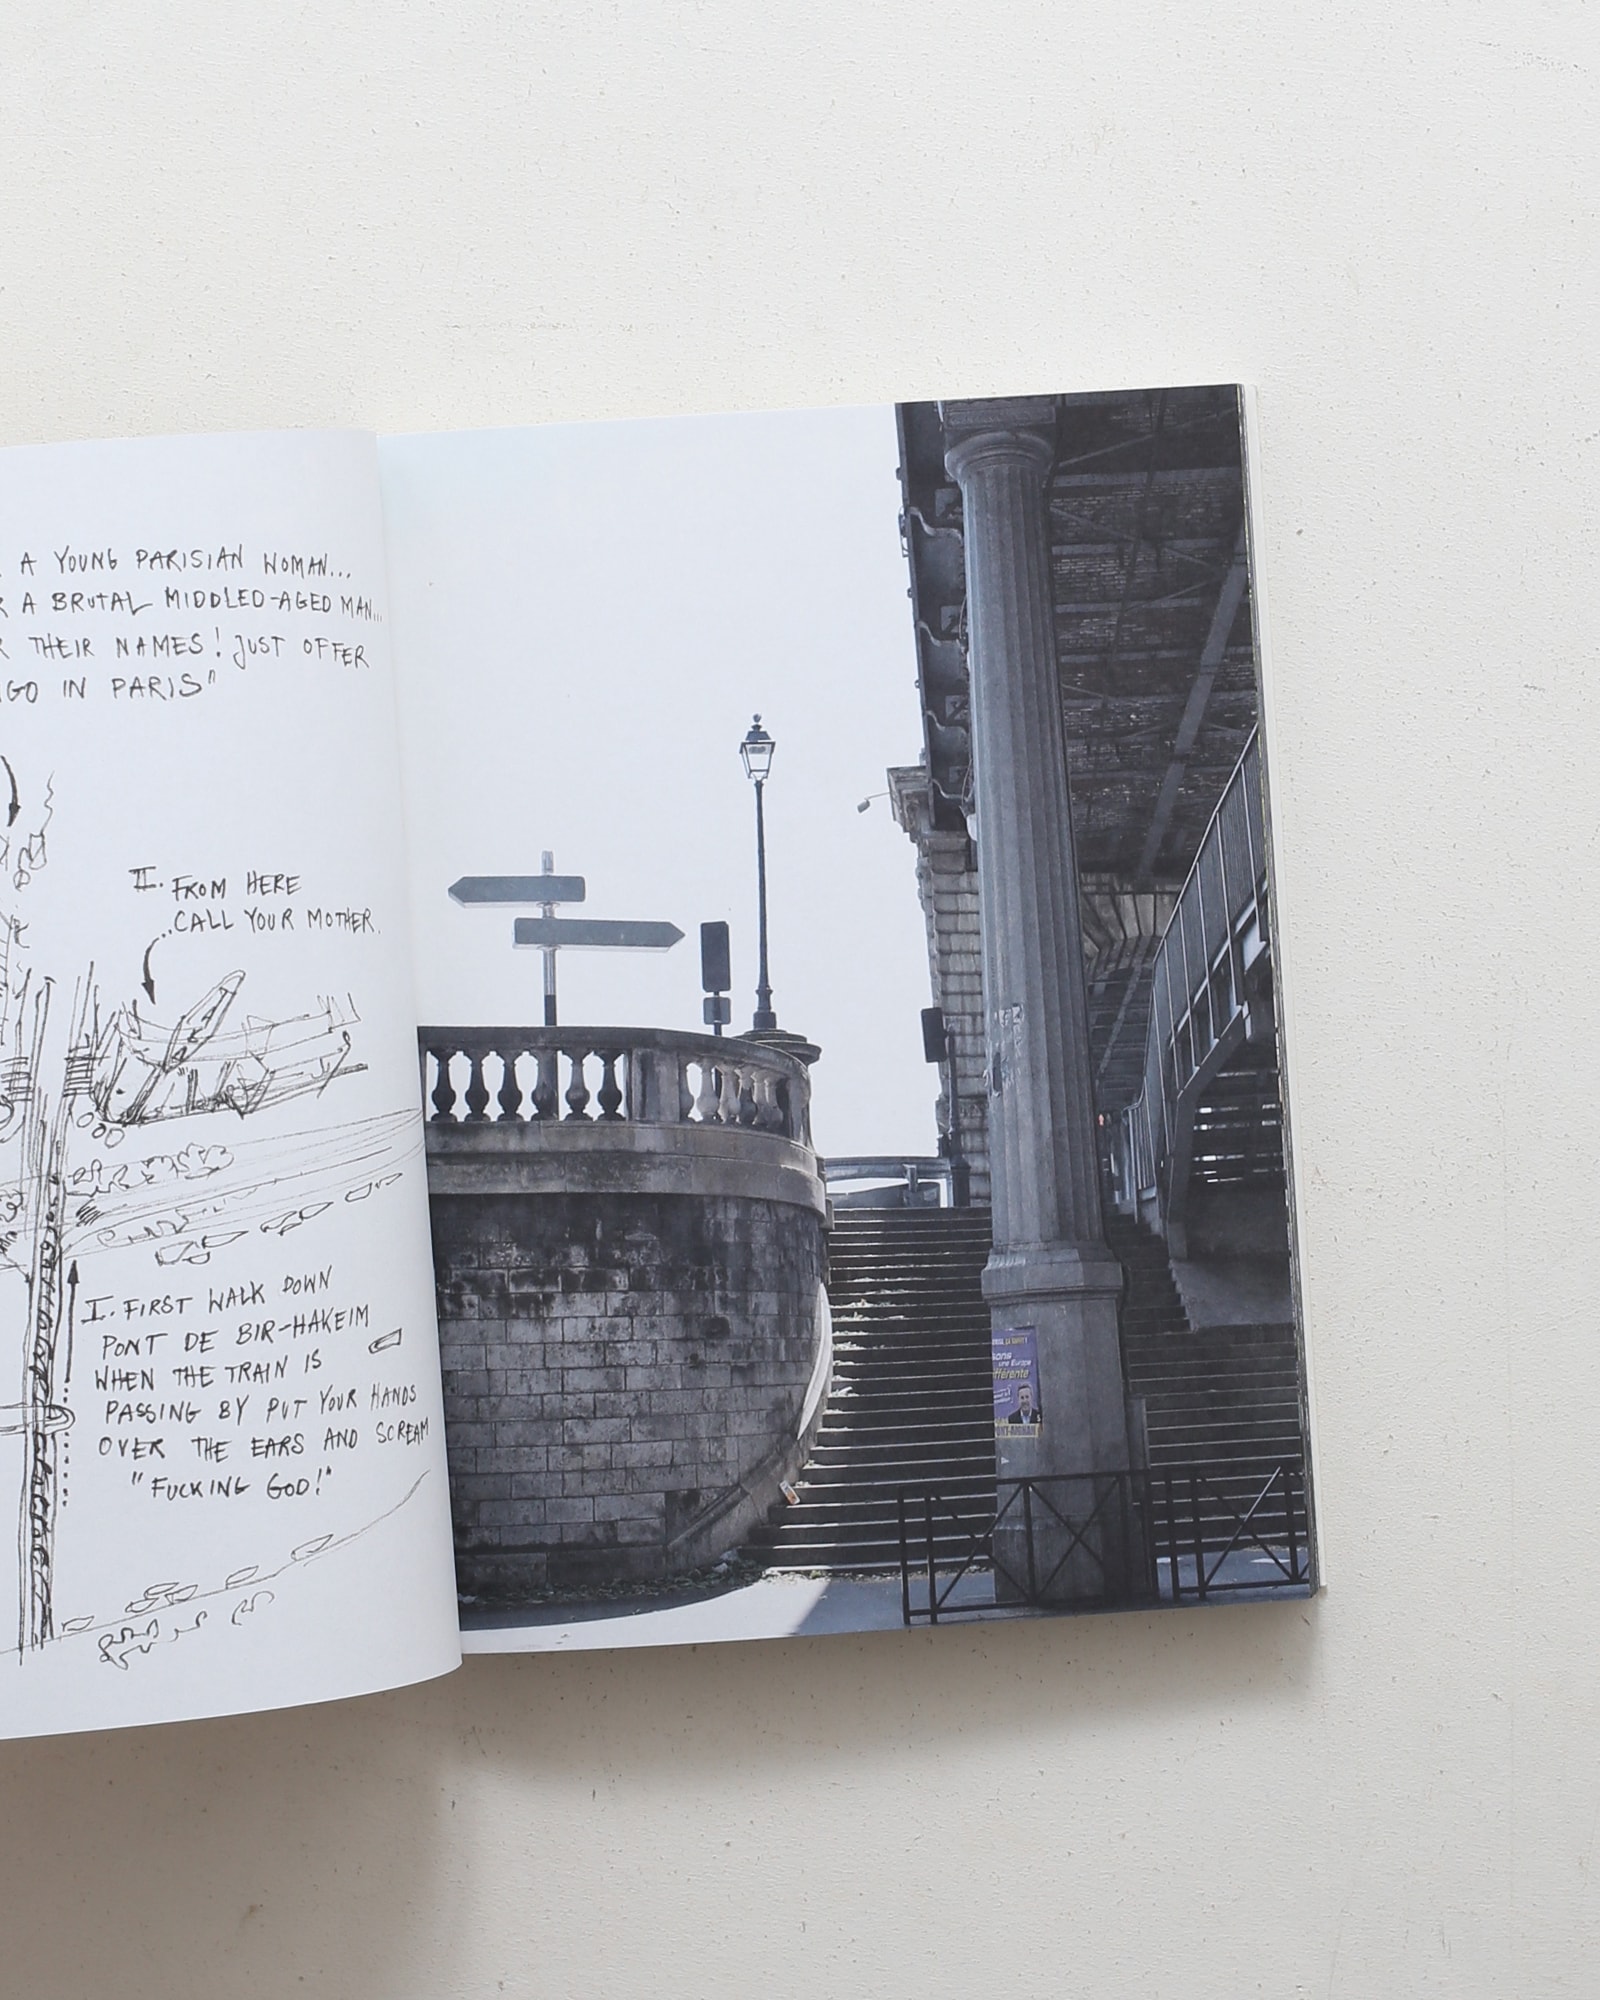 A YOUNG PARISIAN WOMAN...
A BRUTAL MIDDLED-AGED MAN...
THEIR NAMES! JUST OFFER
GO IN PARIS"
II. FROM HERE
CALL YOUR MOTHER.
I. FIRST WALK DOWN
PONT DE BIR-HAKEIM
WHEN THE TRAIN IS
PASSING BY PUT YOUR HANDS
OVER THE EARS AND SCREAM
"FUCKING GOD!"
une Europe